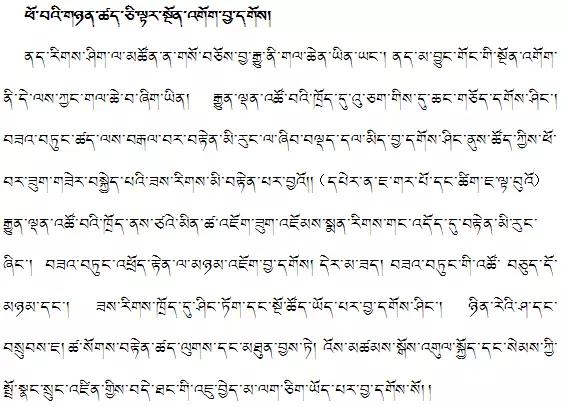 ཕོ་བའི་གཉན་ཚད་ཅི་ལྟར་སྔོན་འགོག་བྱ་དགོས།
ནད་རིགས་ཤིག་ལ་མཚོན་ན་གསོ་བཅོས་བྱ་རྒྱུ་ནི་གལ་ཆེན་ཡིན་ཡང་། ནད་མ་བྱུང་གོང་གི་སྔོན་འགོག་
ནི་དེ་ལས་ཀྱང་གལ་ཆེ་བ་ཞིག་ཡིན། རྒྱུན་ལྡན་འཚོ་བའི་ཁྲོད་དུ་འུ་ཅག་གིས་དུ་ཆང་གཅོད་དགོས་ཤིང་།
བཟའ་བཏུང་ཚད་ལས་བརྒལ་བར་བརྟེན་མི་རུང་ལ་ཞིབ་བལྡད་དལ་མིད་བྱ་དགོས་ཤིང་ནུས་ཚོད་ཀྱིས་ཕོ་
བར་ཟུག་གཟེར་བསྐྱེད་པའི་ཟས་རིགས་མི་བརྟེན་པར་བྱའོ།། (དཔེར་ན་ཇ་གར་པོ་དང་ཚིག་ཇ་ལྟ་བུའོ)
རྒྱུན་ལྡན་འཚོ་བའི་ཁྲོད་ནས་ཙའེ་མིན་ཚ་འཇོག་ཟུག་འཇོམས་སྨན་རིགས་གང་འདོད་དུ་བརྟེན་མི་རུང་
ཞིང་། བཟའ་བཏུང་འཕྲོད་རྟེན་ལ་མཉམ་འཇོག་བྱ་དགོས། དེར་མ་ཟད། བཟའ་བཏུང་གི་འཚོ་ བཅུད་དོ་
མཉམ་དང་། ཟས་རིགས་ཁྲོད་དུ་ཤིང་ཏོག་དང་སྔོ་ཚོད་ཡོད་པར་བྱ་དགོས་ཤིང་། ཉིན་རེའི་ཤ་དང་
བསྲུབས་ཇ། ཚ་སོགས་བརྟེན་ཚད་ལུགས་དང་མཐུན་བྱས་ཏེ། འོས་མཚམས་སྒོས་འགུལ་སྐྱོད་དང་སེམས་ཀྱི་
སྤྲོ་སྣང་སྲུང་འཛིན་གྱིས་བདེ་ཐང་གི་འཇུ་བྱེད་མ་ལག་ཅིག་ཡོད་པར་བྱ་དགོས་སོ།།